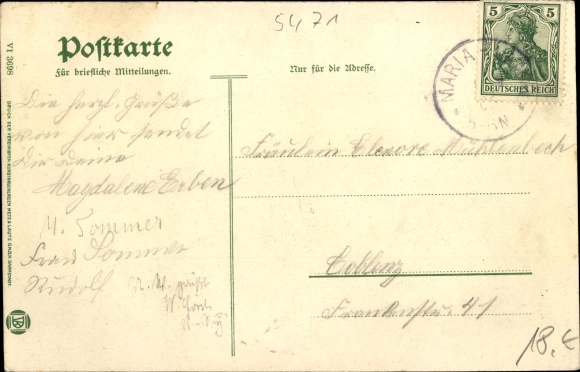 5471
VI 3698
Postkarte
Für briefliche Mitteilungen.
Nur für die Adresse.
5 5
DEUTSCHES REICH
MARIA
Die herzl. Grüße
von hier sendet
Dir Deine
Magdalena Erben
M. Sommer
Frau Sommer
Rudolf
grüßt
Fräulein Eleonore Mühlenbech
Coblenz
Frankenstr. 41
18,€